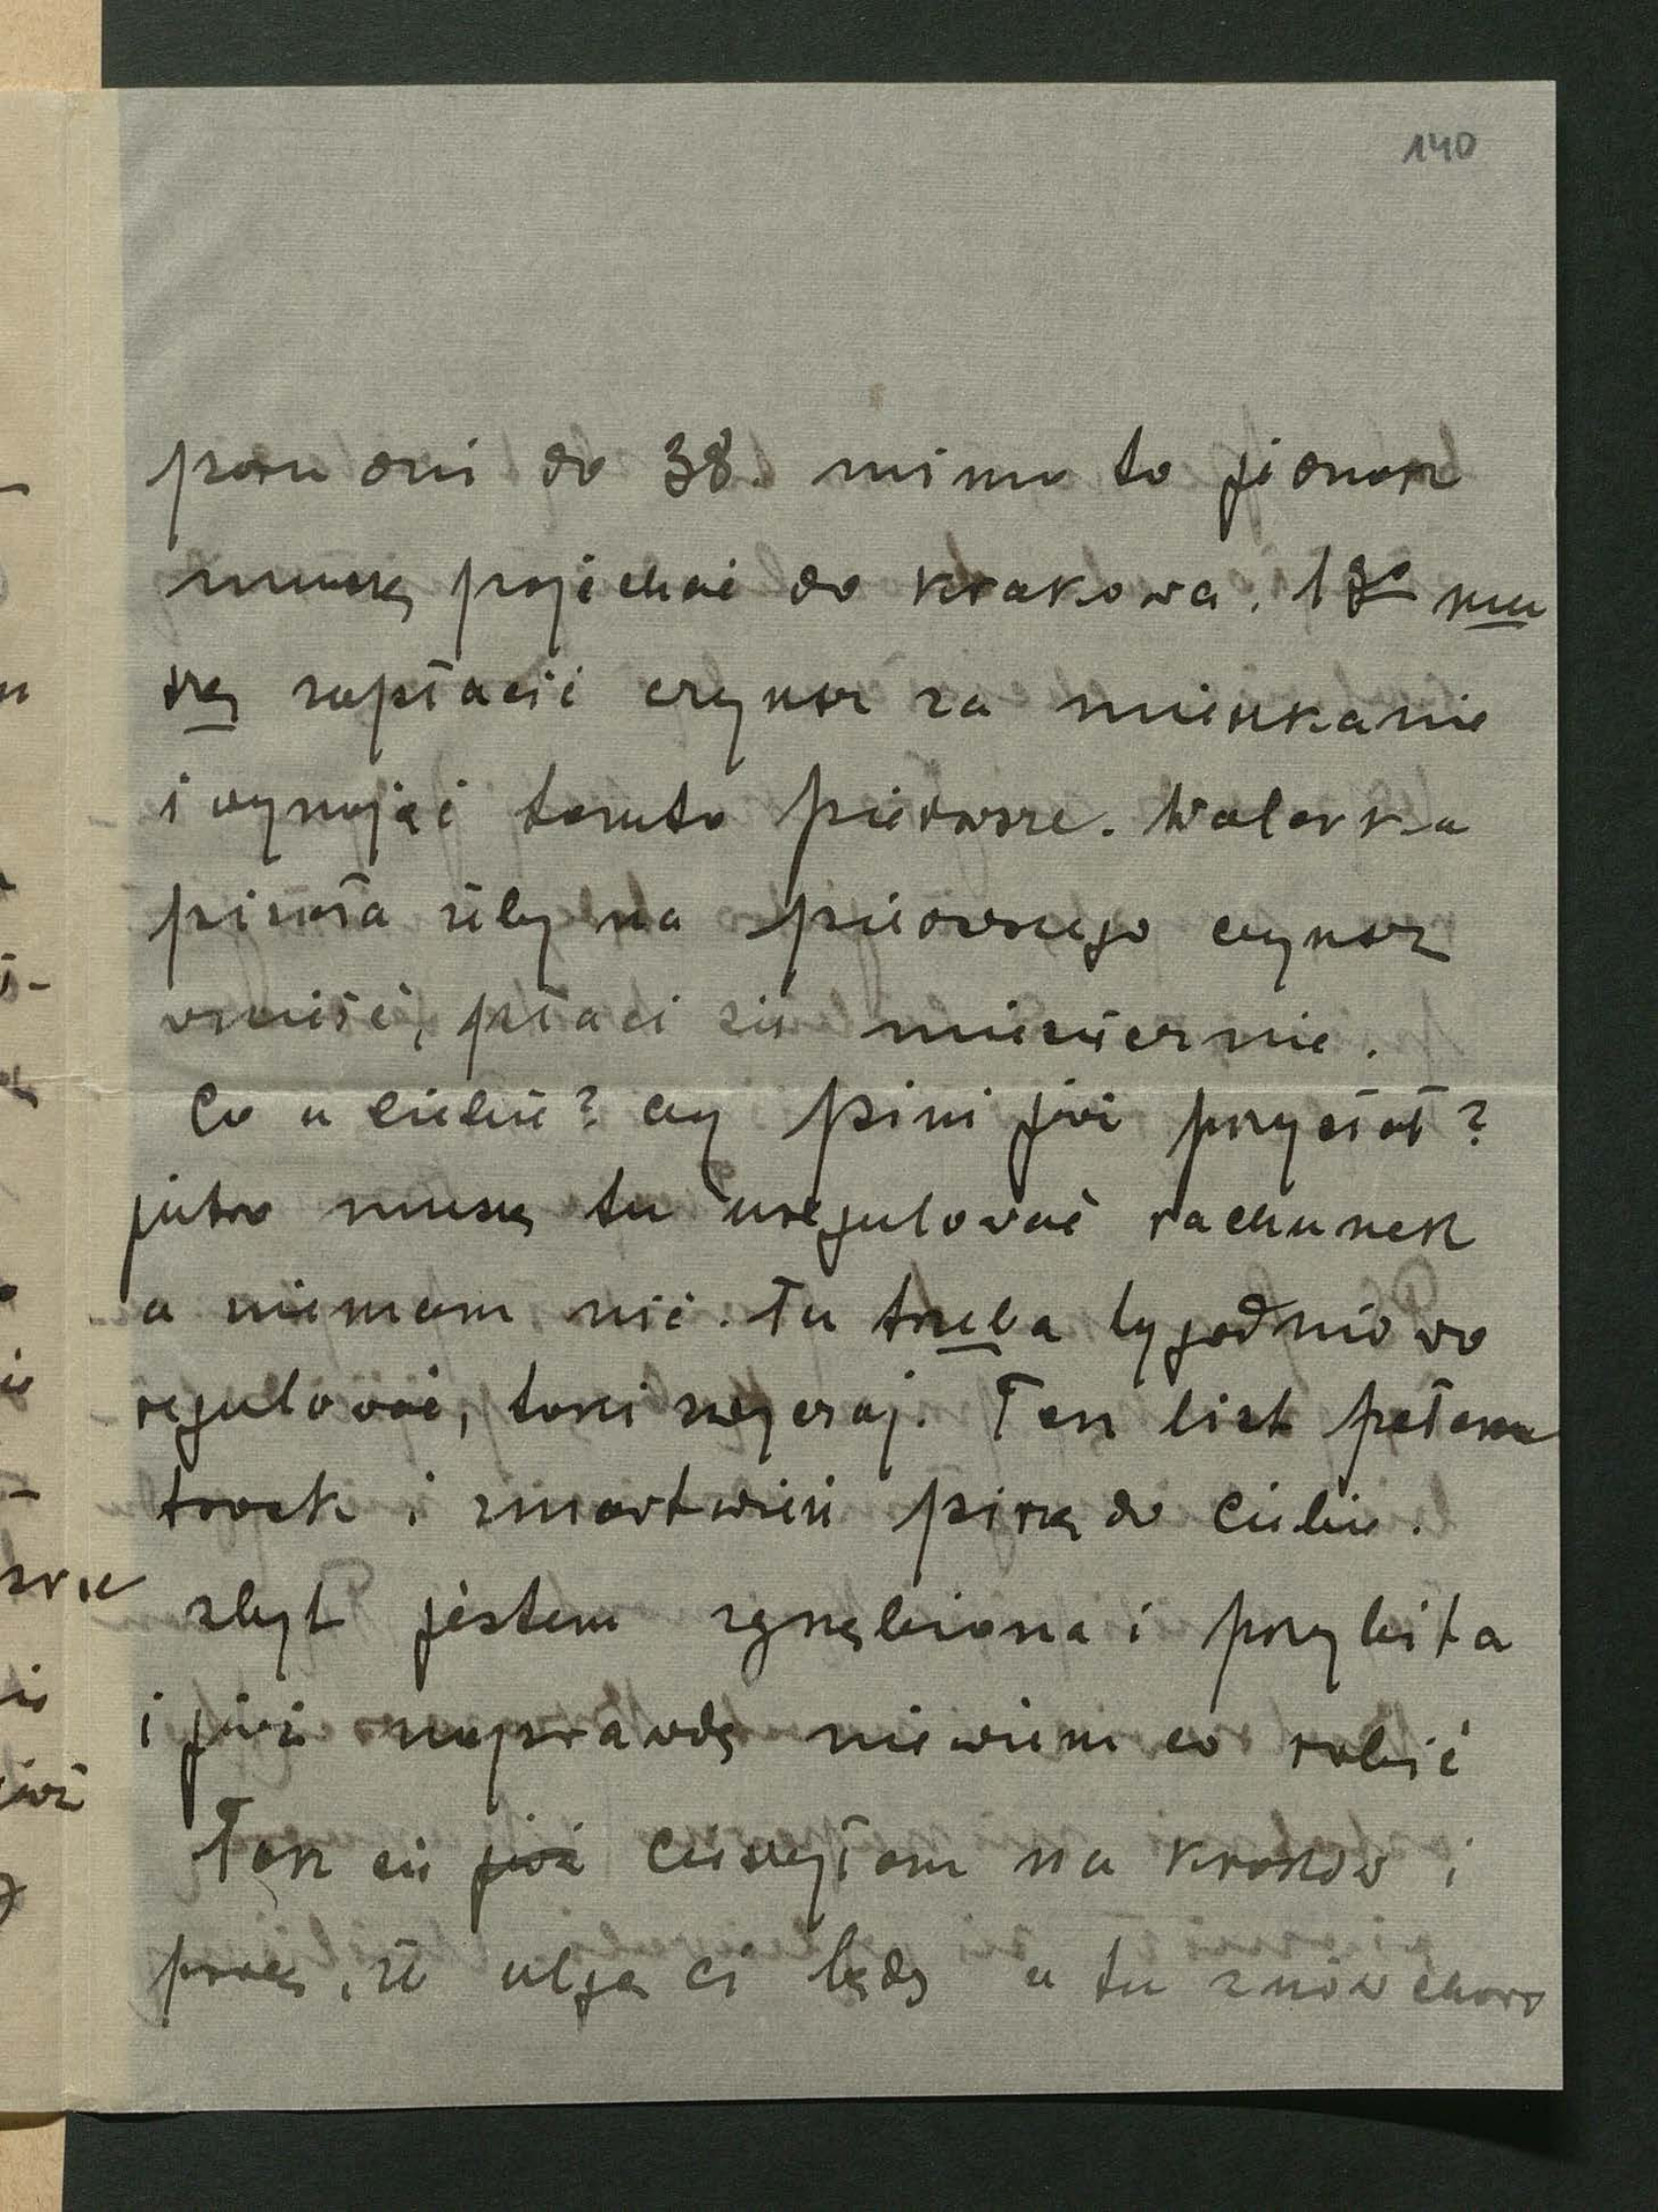 140
paru dni do 38. mimo to jednak
muszę pojechać do Krakowa. 1go mu
szę zapłacić czynsz za mieszkanie
i wynająć tamto pierwsze. Walerka
pisała żeby na pierwszego czynsz
wnieść, płaci się miesięcznie.
Co u Ciebie? czy Pini już przysłał?
jutro muszę tu uregulować rachunek
a niemam nic. Tu trzeba tygodniowo
regulować, taki zwyczaj. Ten list pełen
trosk i zmartwień piszę do Ciebie.
zbyt jestem zgnębiona i przybita
i już naprawdę niewiem co robić
Tak się już cieszyłam na Kraków i
pracę, że ulgą Ci będę a tu znów choro